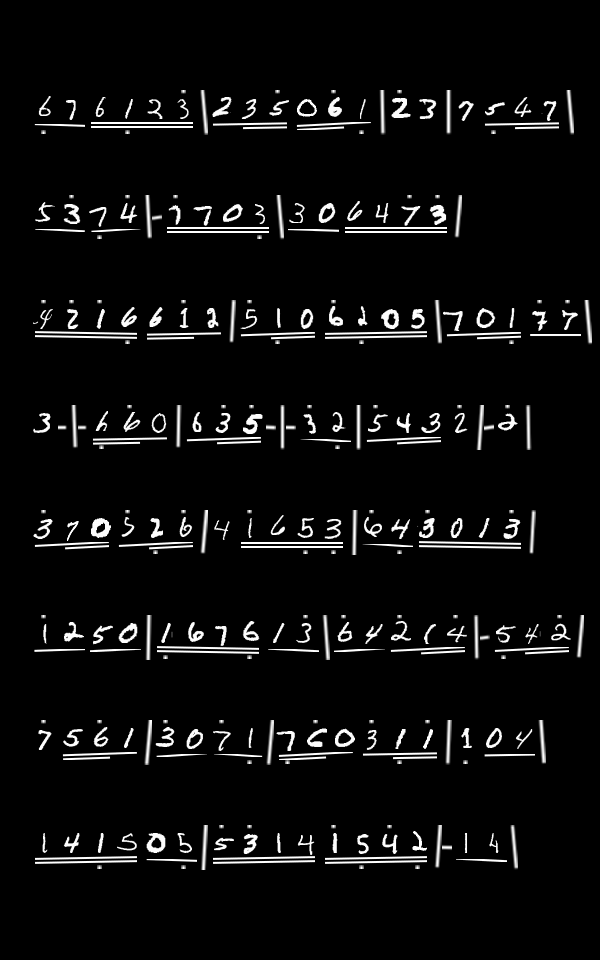 6 7 6 1 2 3 | 2 3 5 0 6 1 | 2 3 | 7 5 4 7 |
5 3 7 4 | - 1 7 0 3 | 3 0 6 4 7 3 |
4 2 1 6 6 1 2 | 5 1 0 6 2 0 5 | 7 0 1 7 7 |
3 - | - 6 6 0 | 6 3 5 - | - 3 2 | 5 4 3 2 | - 2 |
3 7 0 5 2 6 | 4 1 6 5 3 | 6 4 3 0 1 3 |
1 2 5 0 | 1 6 7 6 1 3 | 6 4 2 1 4 | - 5 4 2 |
7 5 6 1 | 3 0 7 1 | 7 6 0 3 1 1 | 1 0 4 |
1 4 1 5 0 5 | 5 3 1 4 1 5 4 2 | - 1 4 |